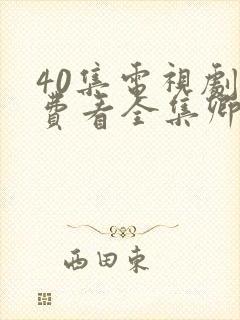 40集電視劇
費看全集卿
西田東